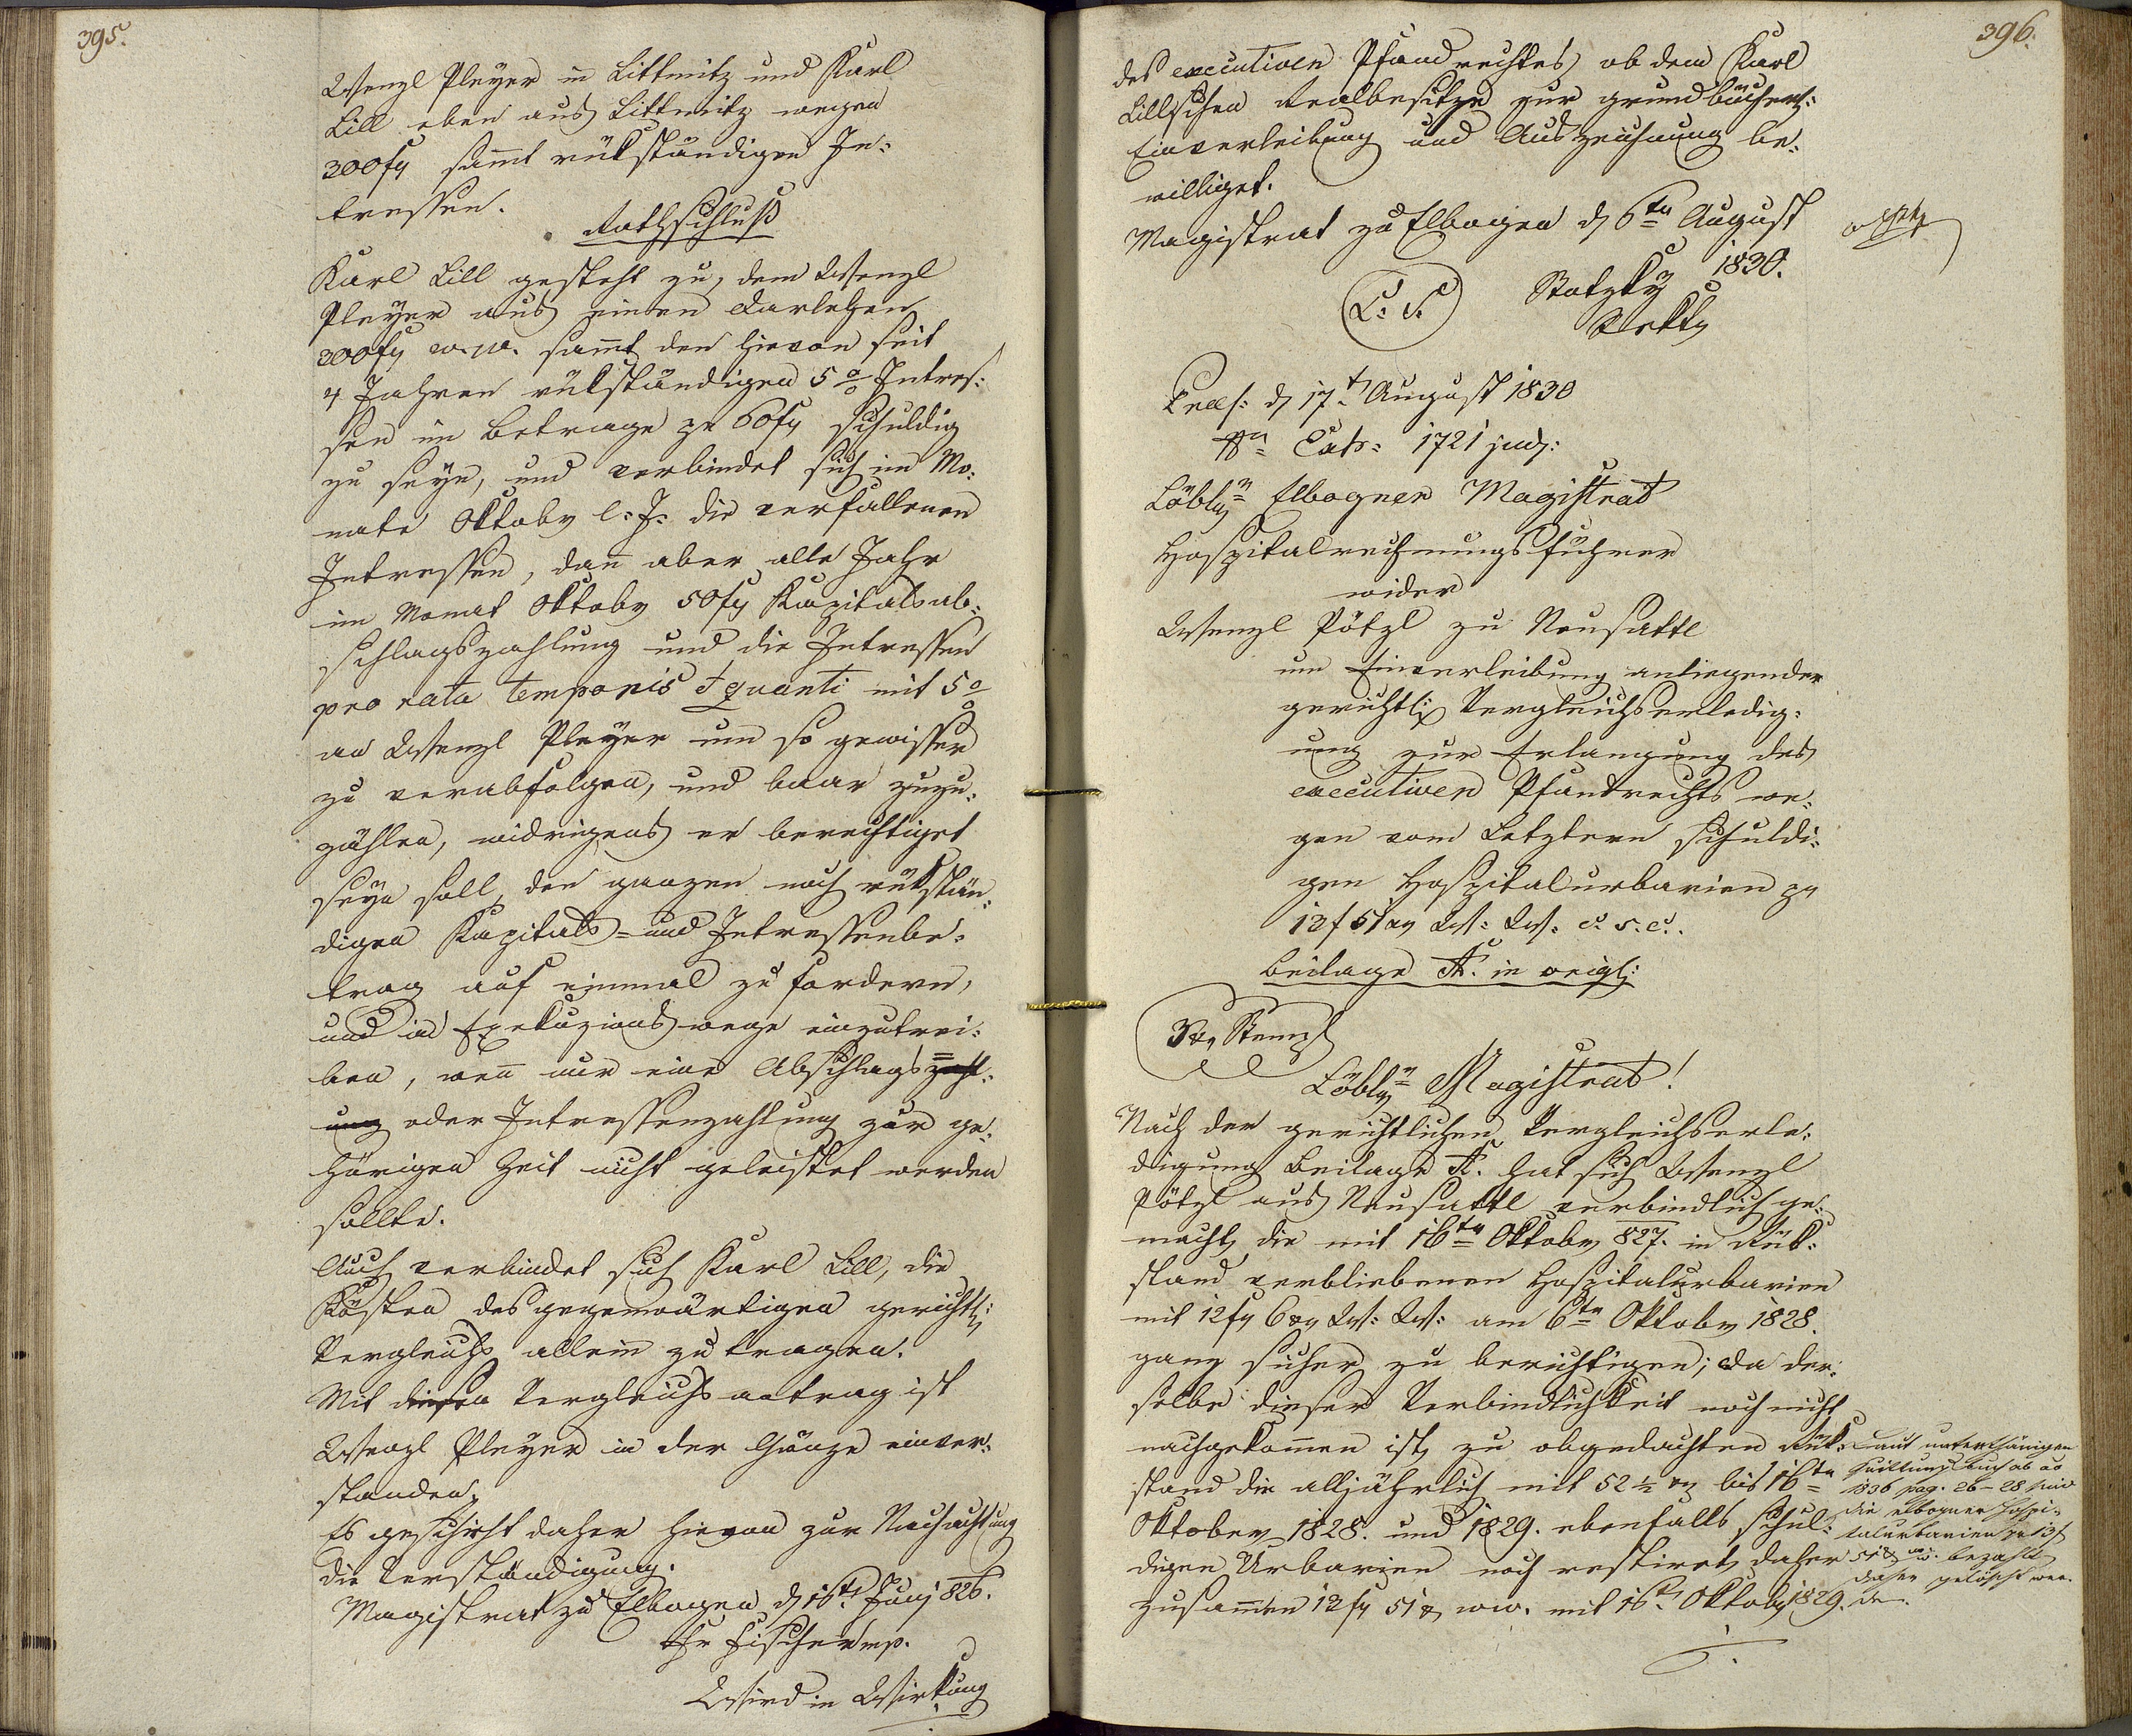 395.
Wenzl Pleÿer in Littmitz und Karl
Lill eben aus Littmitz wegen
300 fr sam̄t rükständigen In-
tressen.
Rathschluß
Karl Lill gesteht zu, dem Wenzl
Pleÿer aus einen Darlehen
300 fr w. w. sam̄t den hievon seit
4 Jahren rükständigen 5 % Intres-
sen im Betrage pr 60 fr schuldig
zu seÿn, und verbindet sich im Mo-
nate Oktober l: J: die verfallenen
Intressen, dan̄ aber alle Jahr
im Monat Oktober 50 fr Kapitalsab-
schlagszahlung und die Intressen
pro rata temporis et quanti mit 5 %
an Wenzl Pleÿer um so gewisser
zu verabfolgen, und baar zuzu-
zählen, widrigens er berechtiget
seÿn soll, den ganzen noch rükstän-
digen Kapitals- und Intressenbe-
trag auf einmal zu fordern,
und im Exekuzionswege einzutrei-
ben, wen̄ nur eine Abschlags= zahl-
ung oder Intressenzahlung zur ge-
hörigen Zeit nicht geleistet werden
sollte.
Auch verbindet sich Karl Lill, die
Kösten des gegenwärtigen gerichtl:
Vergleichs allein zu tragen.
Mit diesen Vergleichsantrag ist
Wenzl Pleÿer in der Gänze einver-
standen.
Es geschieht daher hievon zur Nachachtung
die Verständigung.
Magistrat zu Elbogen d 16t Junj 826.
Fischer mp.
Wird in Wirkung
396.
des executiven Pfandrechtes ob dem Karl
Lillschen Realbesitze zur grundbücherl:
Einverleibung und Auszeichnung be-
williget.
Magistrat zu Elbogen d 6ten August
1830.
L: S.
Stotzky
Praes: d 17t August 1830
Nr Exh: 1721 jud:
Löbler Elbogner Magistrat
Hospitalrechnungsführer
wider
Wenzl Pötzl zu Neusattl
um Einverleibung anliegender
gerichtl: Vergleichserledig-
ung zur Erlangung des
executiven Pfandrechts we-
gen vom Letztern schuldi-
gen Hospitalurbarien pr
13 f 51 xr W: W: c. s. c.
Beilage A. in origl:
3 xr Stempl
Löbler Magistrat!
Nach der gerichtlichen Vergleichserle-
digung Beilage A. hat sich Wenzl
Pötzl aus Neusattl verbindlich ge-
macht, die mit 16ten Oktober 827. in Rük-
stand verbliebenen Hospitalurbarien
mit 12 fr 6 xr W: W: am 6ten Oktober 1828.
ganz sicher zu berichtigen; da der-
selbe dieser Verbindlichkeit noch nicht
nachgekom̄en ist, zu obgedachten Rük-
stand die alljährlich mit 52 ½ xr bis 16ten
Oktober 1828. und 1829. ebenfalls schul-
digen Urbarien noch restiret, daher
zusam̄en 13 fr 51 x ww. mit 16t Oktober 1829.
Laut unterthänigen
Quittungsbuch ab ao
1836 pag. 26–28 sind
die elbogner Hospi-
talurbarien pr 13 f
51 x ww. bezahlt
daher gelöscht wer-
den.